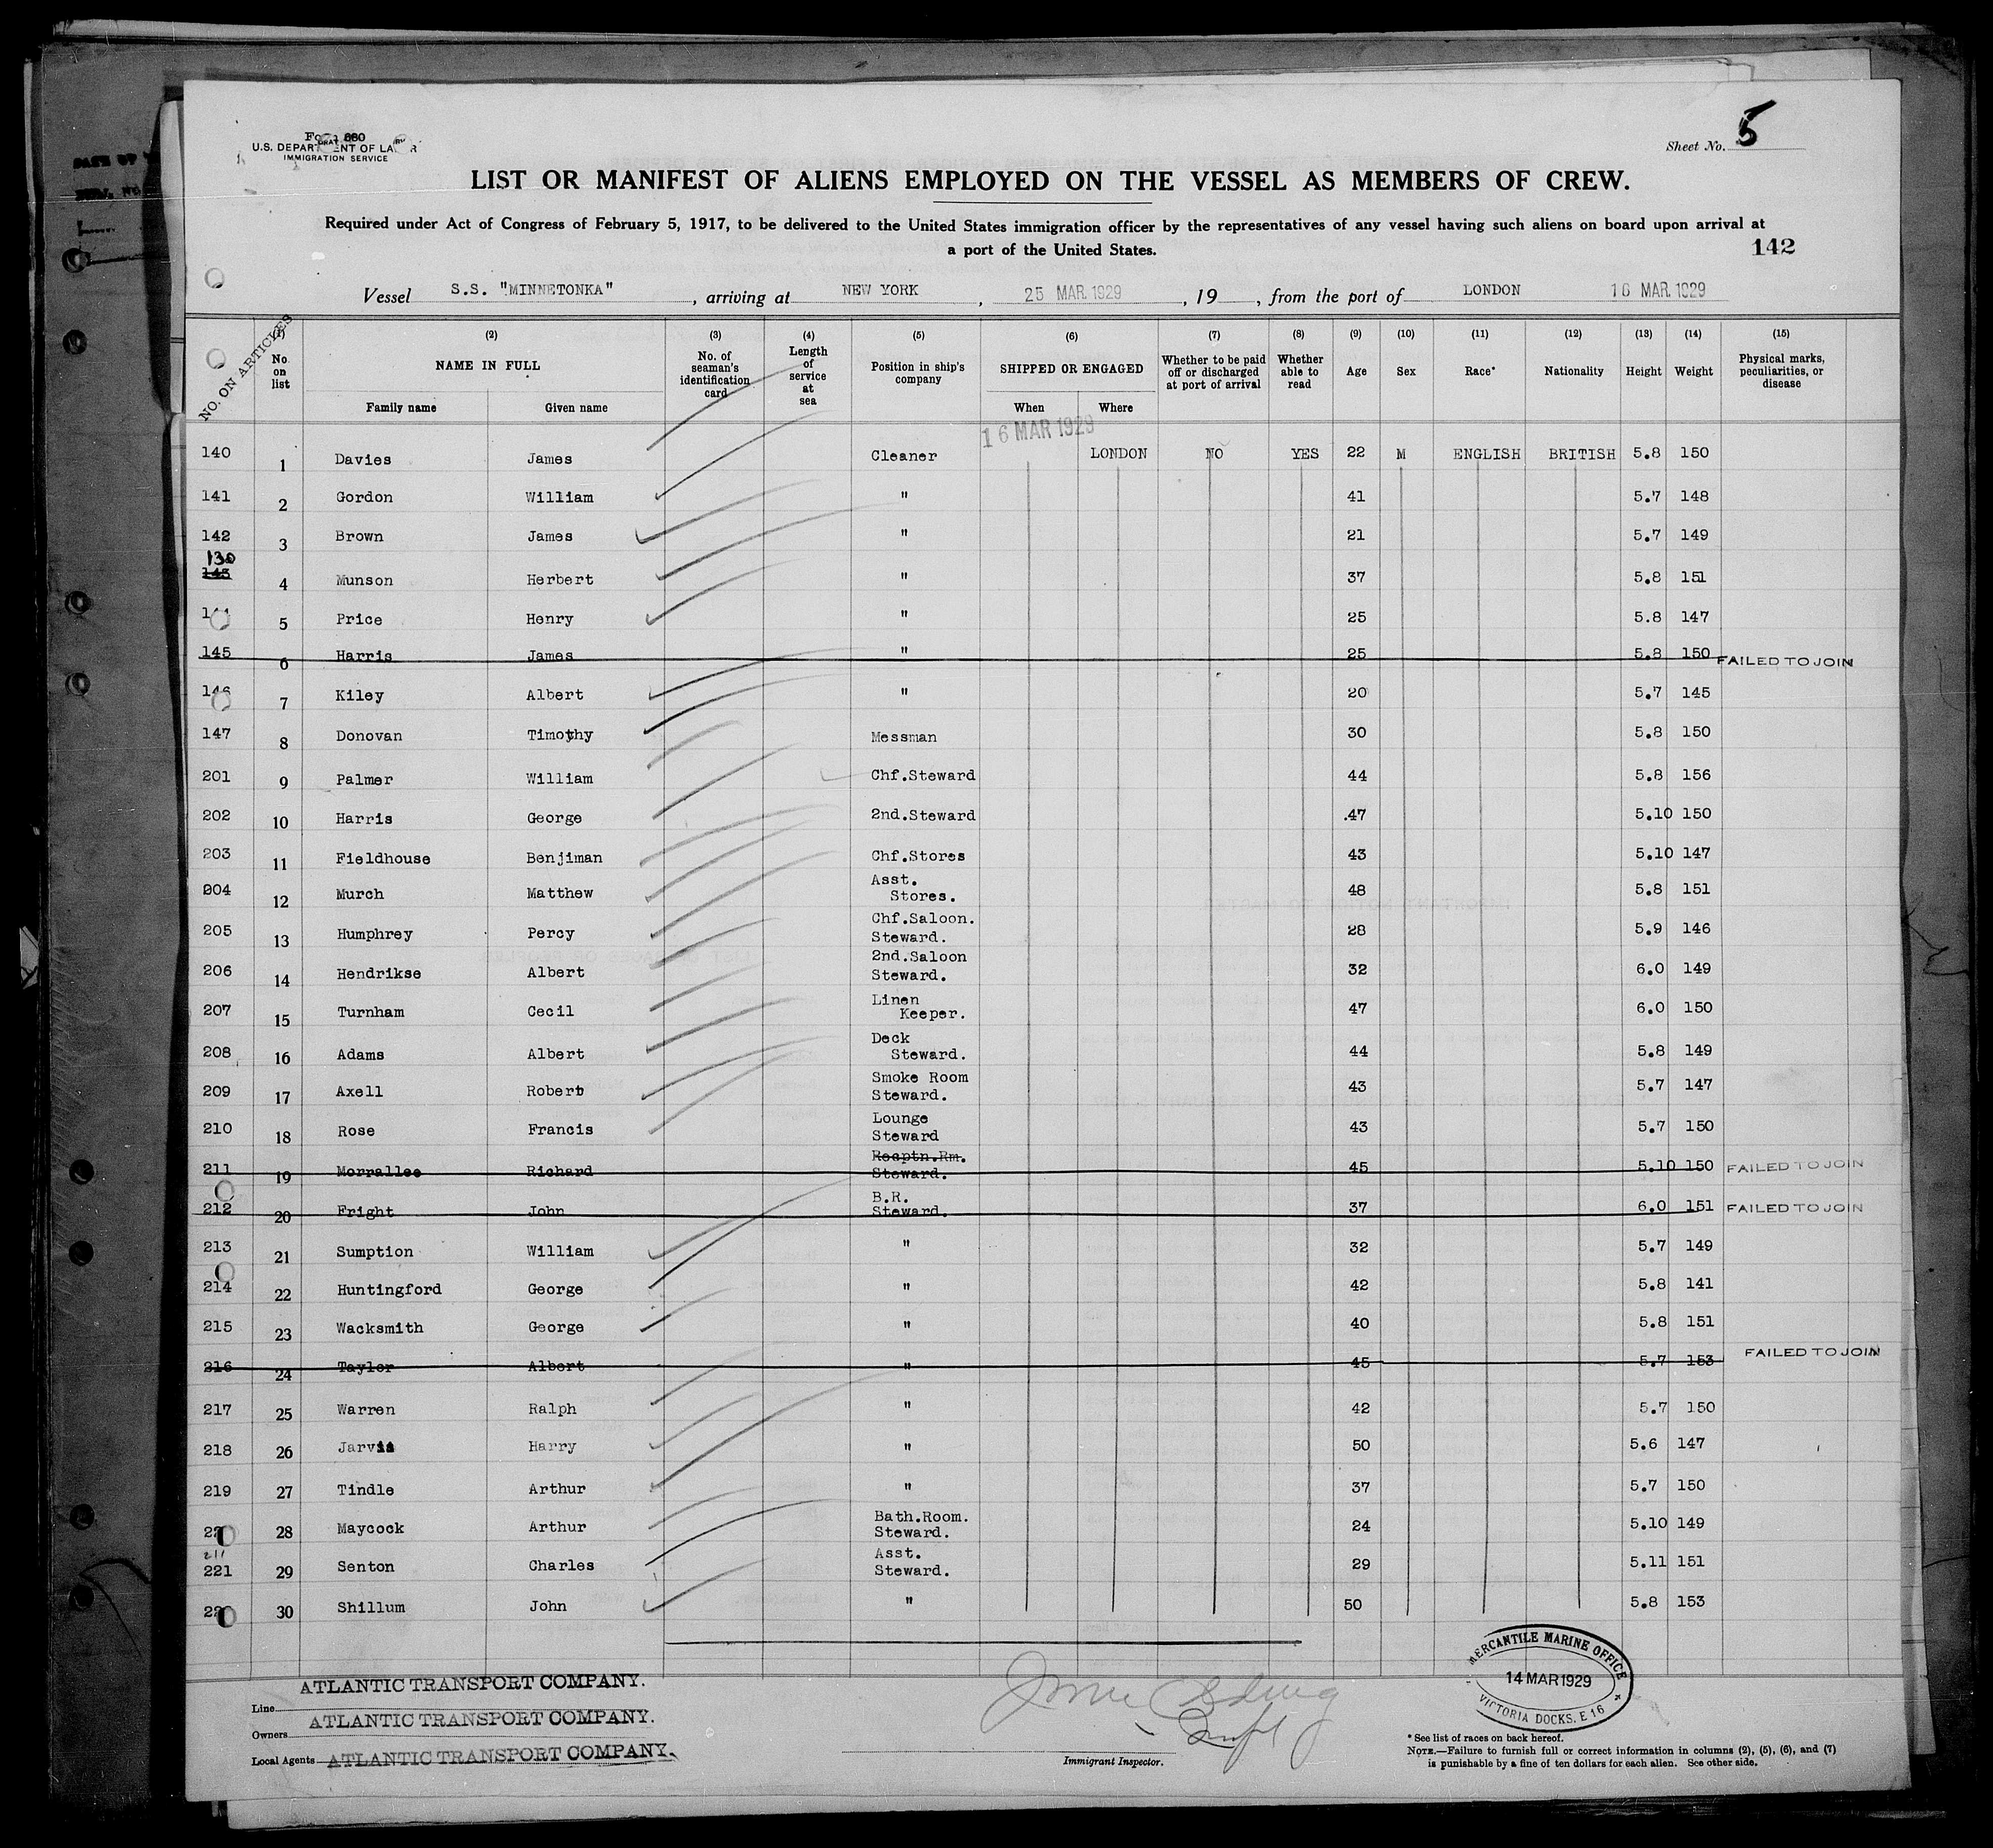 Sheet No. 5
U.S. DEPARTMENT OF LABOR
IMMIGRATION SERVICE
LIST OR MANIFEST OF ALIENS EMPLOYED ON THE VESSEL AS MEMBERS OF CREW.
Required under Act of Congress of February 5, 1917, to be delivered to the United States immigration officer by the representatives of any vessel having such aliens on board upon arrival at
a port of the United States.
142
Vessel S.S. "MINNETONKA" , arriving at NEW YORK , 25 MAR 1929 , 19 , from the port of LONDON 16 MAR 1929
NO. ON ARTICLES
(1) (2) (3) (4) (5) (6) (7) (8) (9) (10) (11) (12) (13) (14) (15)
No. on list NAME IN FULL No. of seaman's identification card Length of service at sea Position in ship's company SHIPPED OR ENGAGED Whether to be paid off or discharged at port of arrival Whether able to read Age Sex Race* Nationality Height Weight Physical marks, peculiarities, or disease
Family name Given name When Where
16 MAR 1929
140 1 Davies James Cleaner LONDON NO YES 22 M ENGLISH BRITISH 5.8 150
141 2 Gordon William " 41 5.7 148
142 3 Brown James " 21 5.7 149
130
143 4 Munson Herbert " 37 5.8 151
5 Price Henry " 25 5.8 147
145 6 Harris James " 25 5.8 150 FAILED TO JOIN
146 7 Kiley Albert " 20 5.7 145
147 8 Donovan Timothy Messman 30 5.8 150
201 9 Palmer William Chf.Steward 44 5.8 156
202 10 Harris George 2nd.Steward .47 5.10 150
203 11 Fieldhouse Benjiman Chf.Stores 43 5.10 147
204 12 Murch Matthew Asst. Stores. 48 5.8 151
205 13 Humphrey Percy Chf.Saloon. Steward. 28 5.9 146
206 14 Hendrikse Albert 2nd.Saloon Steward. 32 6.0 149
207 15 Turnham Cecil Linen Keeper. 47 6.0 150
208 16 Adams Albert Deck Steward. 44 5.8 149
209 17 Axell Robert Smoke Room Steward. 43 5.7 147
210 18 Rose Francis Lounge Steward 43 5.7 150
211 19 Morrallee Richard Recptn.Rm. Steward. 45 5.10 150 FAILED TO JOIN
212 20 Fright John B.R. Steward. 37 6.0 151 FAILED TO JOIN
213 21 Sumption William " 32 5.7 149
214 22 Huntingford George " 42 5.8 141
215 23 Wacksmith George " 40 5.8 151
216 24 Taylor Albert " 45 5.7 153 FAILED TO JOIN
217 25 Warren Ralph " 42 5.7 150
218 26 Jarvis Harry " 50 5.6 147
219 27 Tindle Arthur " 37 5.7 150
28 Maycock Arthur Bath.Room. Steward. 24 5.10 149
211
221 29 Senton Charles Asst. Steward. 29 5.11 151
30 Shillum John " 50 5.8 153
Line ATLANTIC TRANSPORT COMPANY.
Owners ATLANTIC TRANSPORT COMPANY.
Local Agents ATLANTIC TRANSPORT COMPANY.
Immigrant Inspector.
MERCANTILE MARINE OFFICE
14 MAR 1929
VICTORIA DOCKS. E 16
* See list of races on back hereof.
NOTE.—Failure to furnish full or correct information in columns (2), (5), (6), and (7)
is punishable by a fine of ten dollars for each alien. See other side.